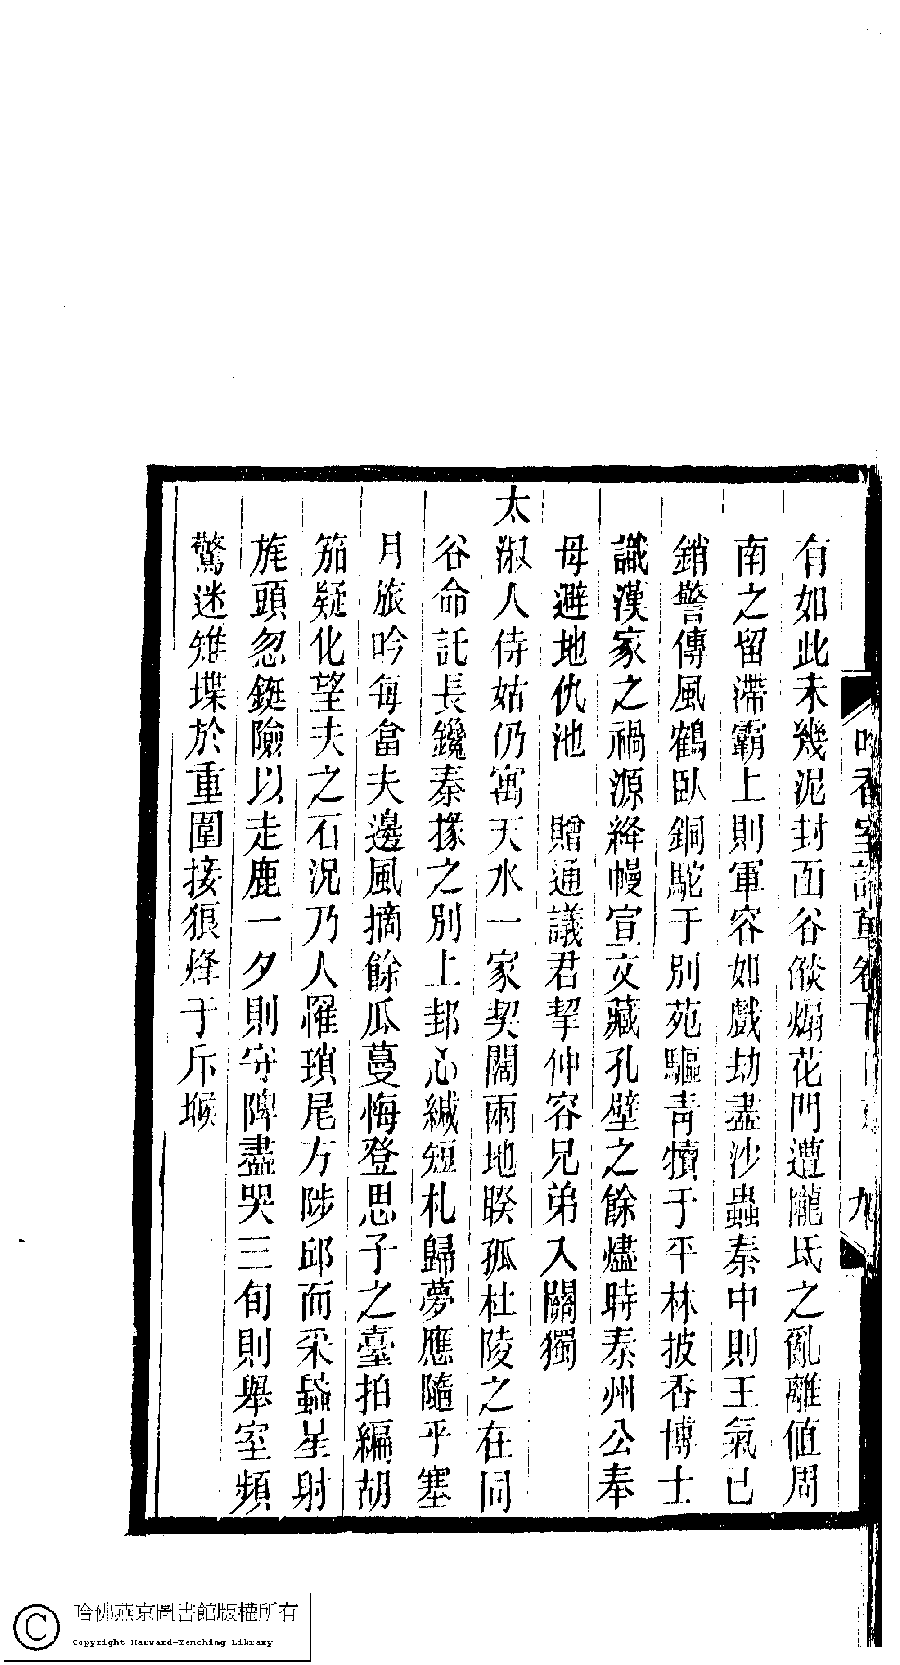 有如此未幾泥封面谷燄煽花門遭隴氐之亂離値周
南之留滯霸上則軍容如戲劫盡沙蟲秦中則王氣已
銷警傳風鶴臥銅駝于別苑驅青犢于平林披香博士
識漢家之禍源絳幔宣文藏孔壁之餘燼時泰州公奉
母避地仇池　贈通議君挈仲容兄弟入關獨
太淑人侍姑仍寓天水一家契闊兩地睽孤杜陵之在同
谷命託長鑱秦掾之別上邽心緘短札歸夢應隨乎塞
月旅吟每當夫邊風摘餘瓜蔓悔登思子之臺拍編胡
笳疑化望夫之石況乃人罹瑣尾方陟邱而采蝱星射
旄頭忽鋌險以走鹿一夕則守陴盡哭三旬則舉室頻
驚迷雉堞於重圍接狼烽于斥堠
吟香室詩草卷下
九
哈佛燕京圖書館版權所有
Copyright Harvard-Yenching Library